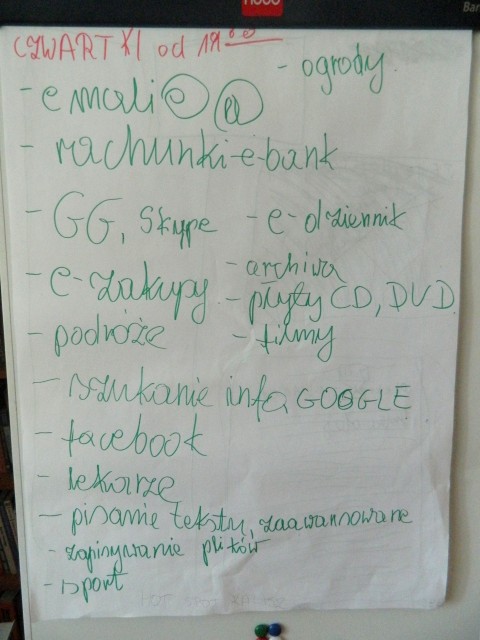 CZWARTKI od 19 00
- ogrody
- e maili @ @
- rachunki-e-bank
- GG, Skype - e-dziennik
- e-zakupy - archiwa
- płyty CD, DVD
- podróże - filmy
- szukanie info GOOGLE
- facebook
- lekarze
- pisanie tekstu, zaawansowane
- zapisywanie plików
- sport